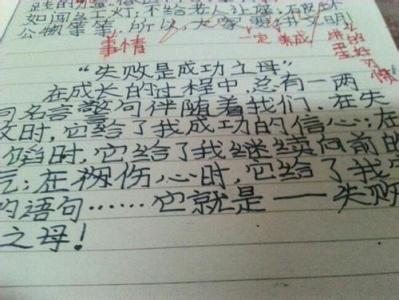 如闯红灯，不给老人让座，
公物等等，所以，大家要讲文明
事情 一定 养成 的好习惯
“失败是成功之母”
在成长的过程中，总有一两
句名言警句伴随着我们．在失
时，它给了我成功的信心；在
陷时，它给了我继续向前的
气；在伤心时，它给了我
的语句……它就是——失败
之母！